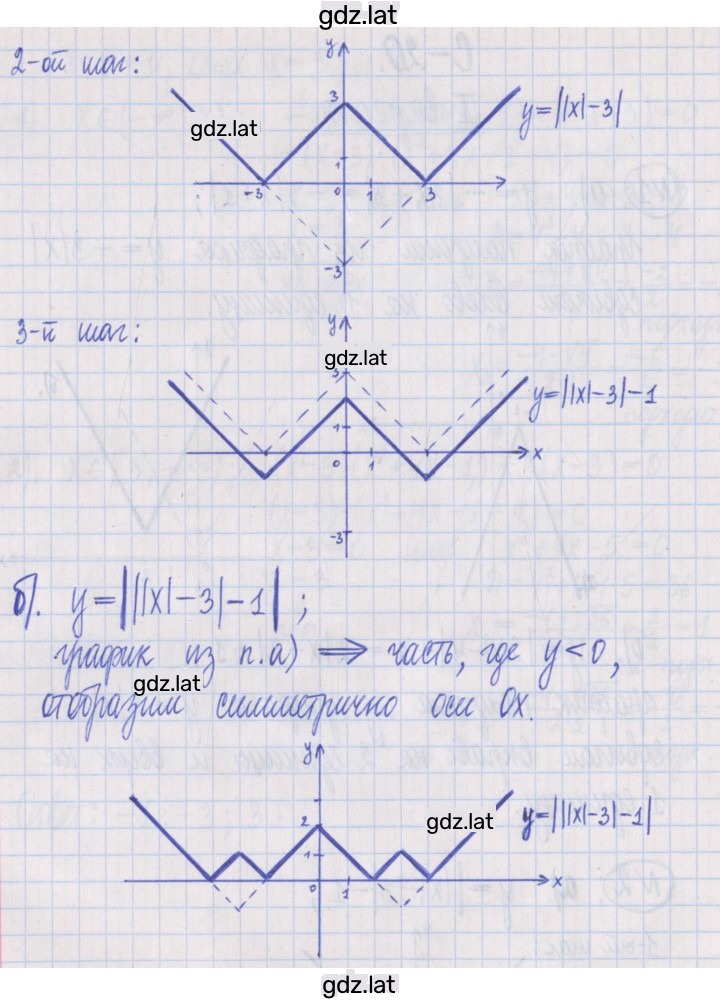 gdz.lat
2-ой шаг:
y
3
gdz.lat
y=||x|-3|
1
-3
0
1
3
-3
3-й шаг:
y
gdz.lat
3
y=||x|-3|-1
1
x
0
1
-3
б). y=|||x|-3|-1|;
график из п.а) ⟹ часть, где y<0,
gdz.lat
отобразим симметрично оси Ox.
y
2
gdz.lat
y=|||x|-3|-1|
1
x
0
1
gdz.lat